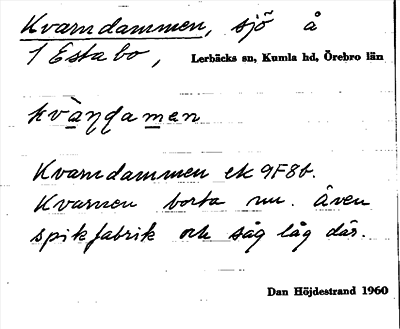 Kvarndammen, sjö å
1 Estabo, Lerbäcks sn, Kumla hd, Örebro län
kvàɳdamen
Kvarndammen ek 9F8b.
Kvarnen borta nu. Även
spikfabrik och såg låg där.
Dan Höjdestrand 1960